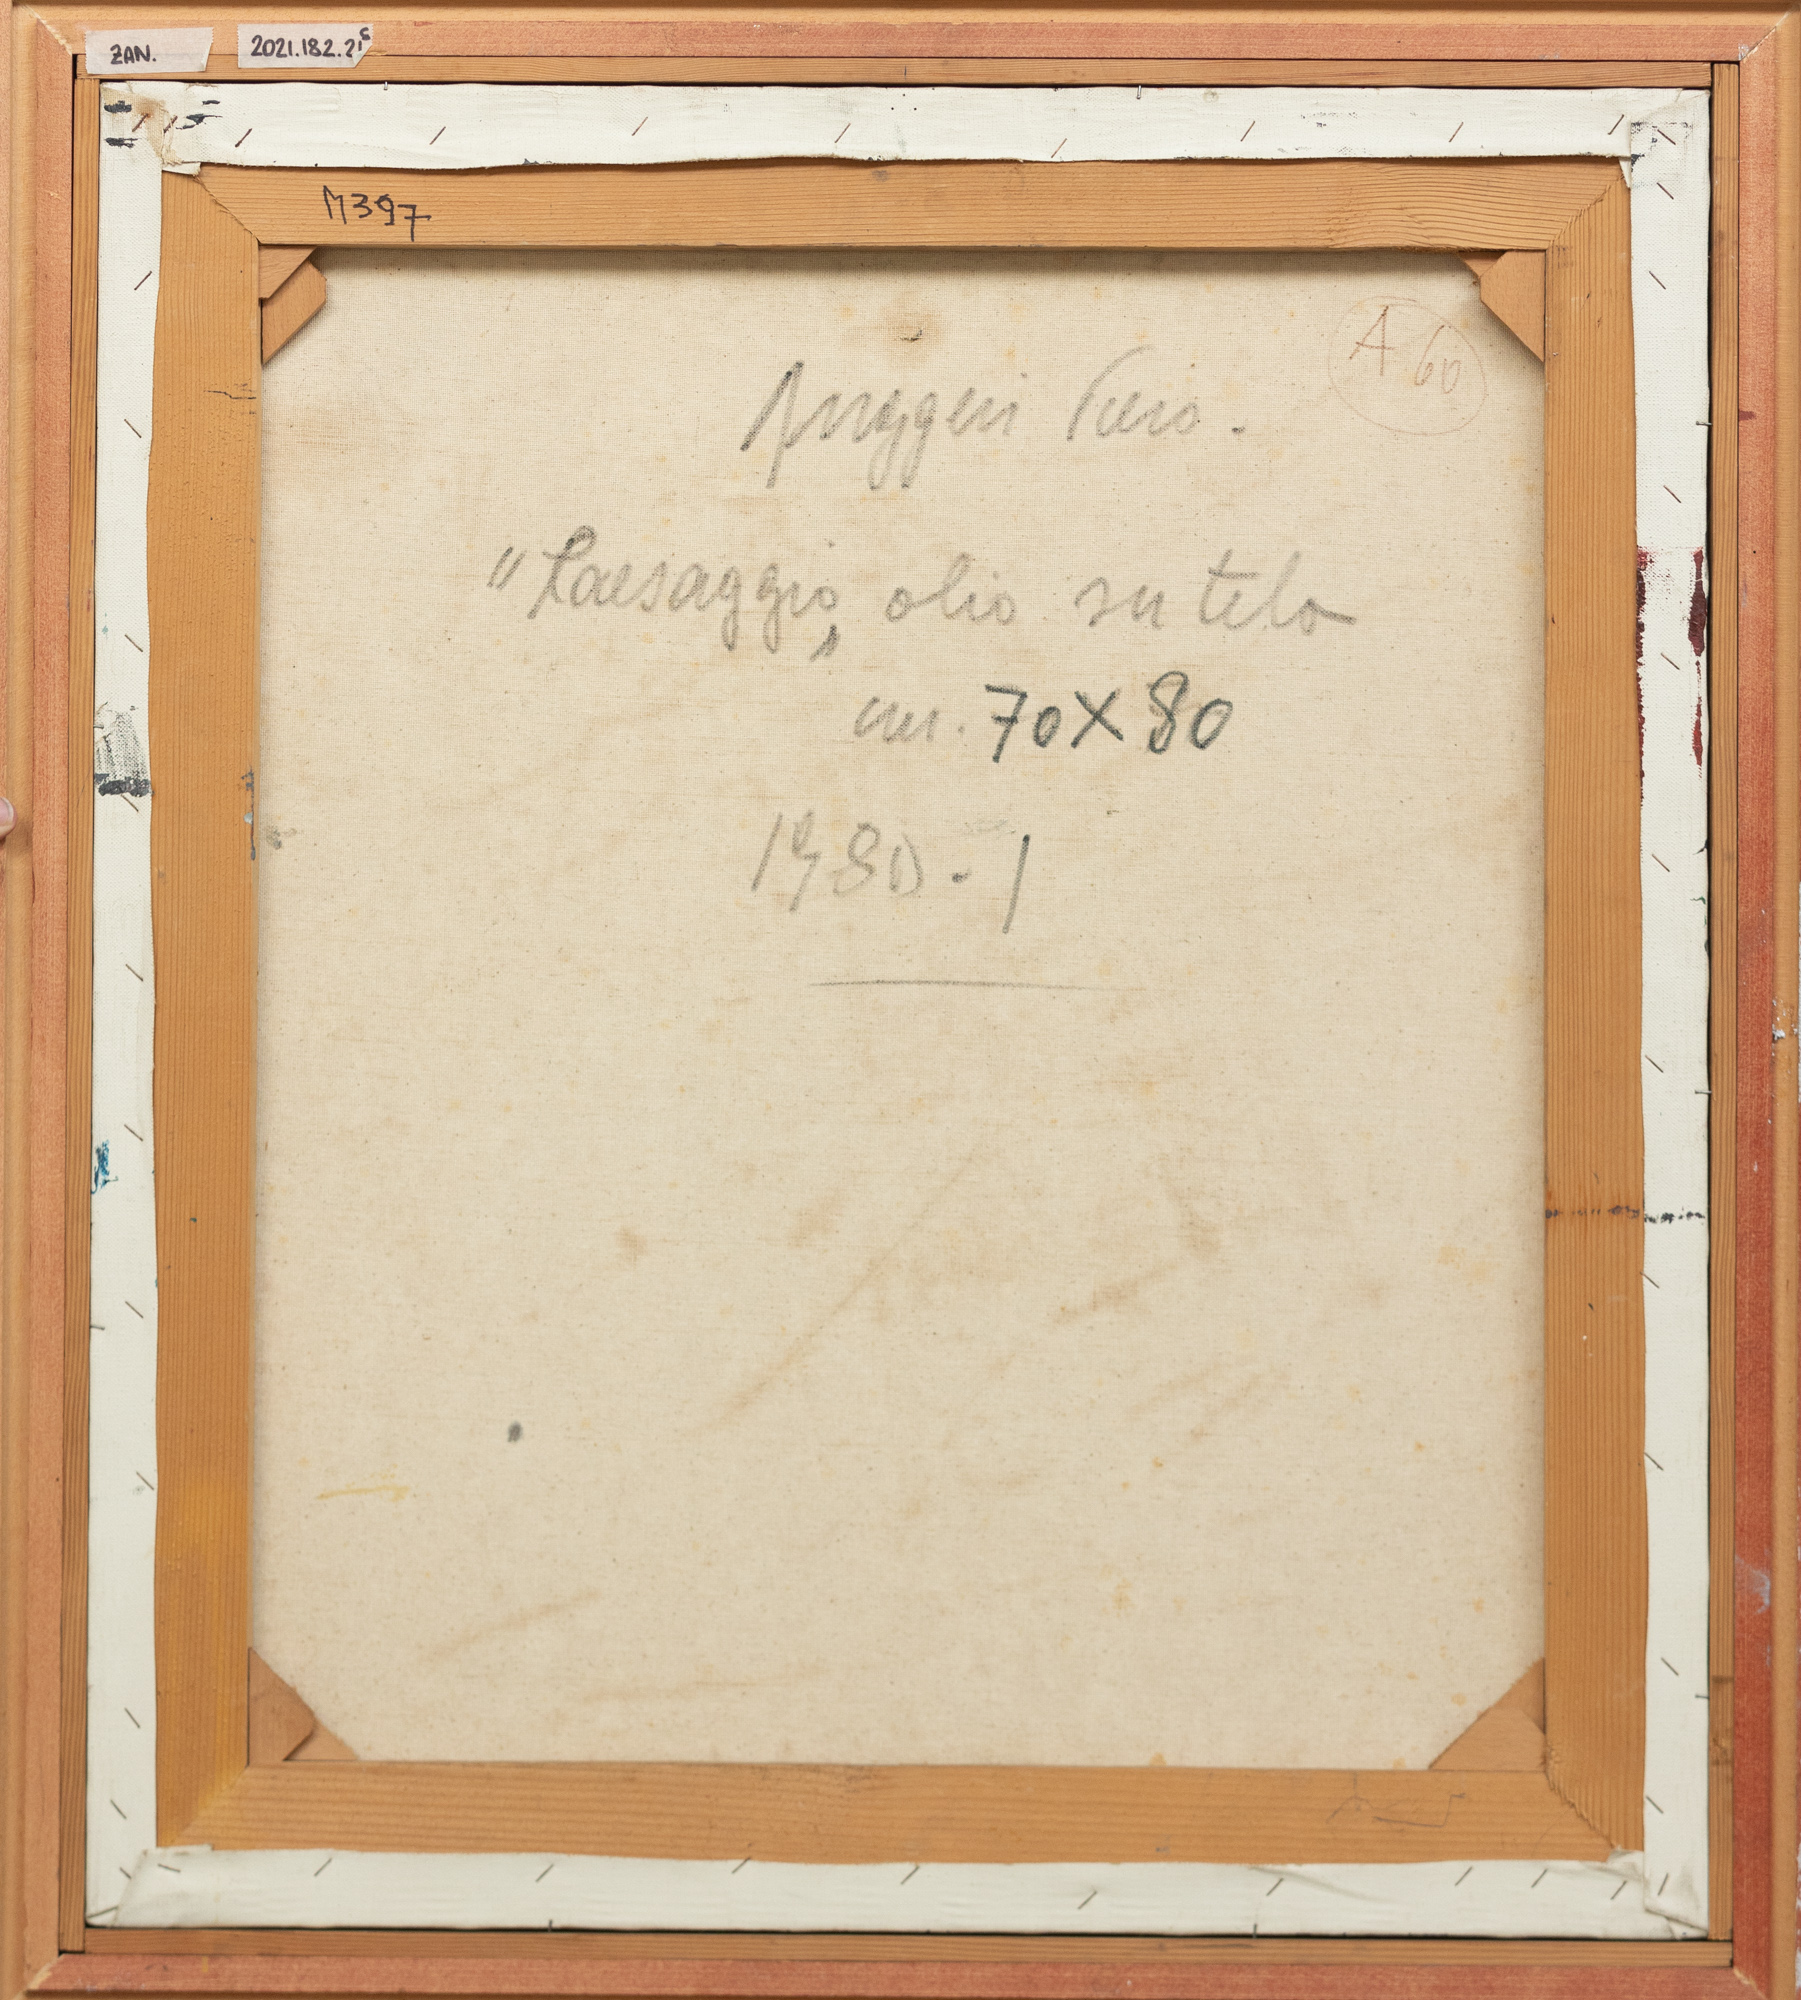 ZAN. 2021.182.21
M397
A 60
Ruggeri Piero.
"Paesaggio" olio su tela
cm. 70X80
1980-1